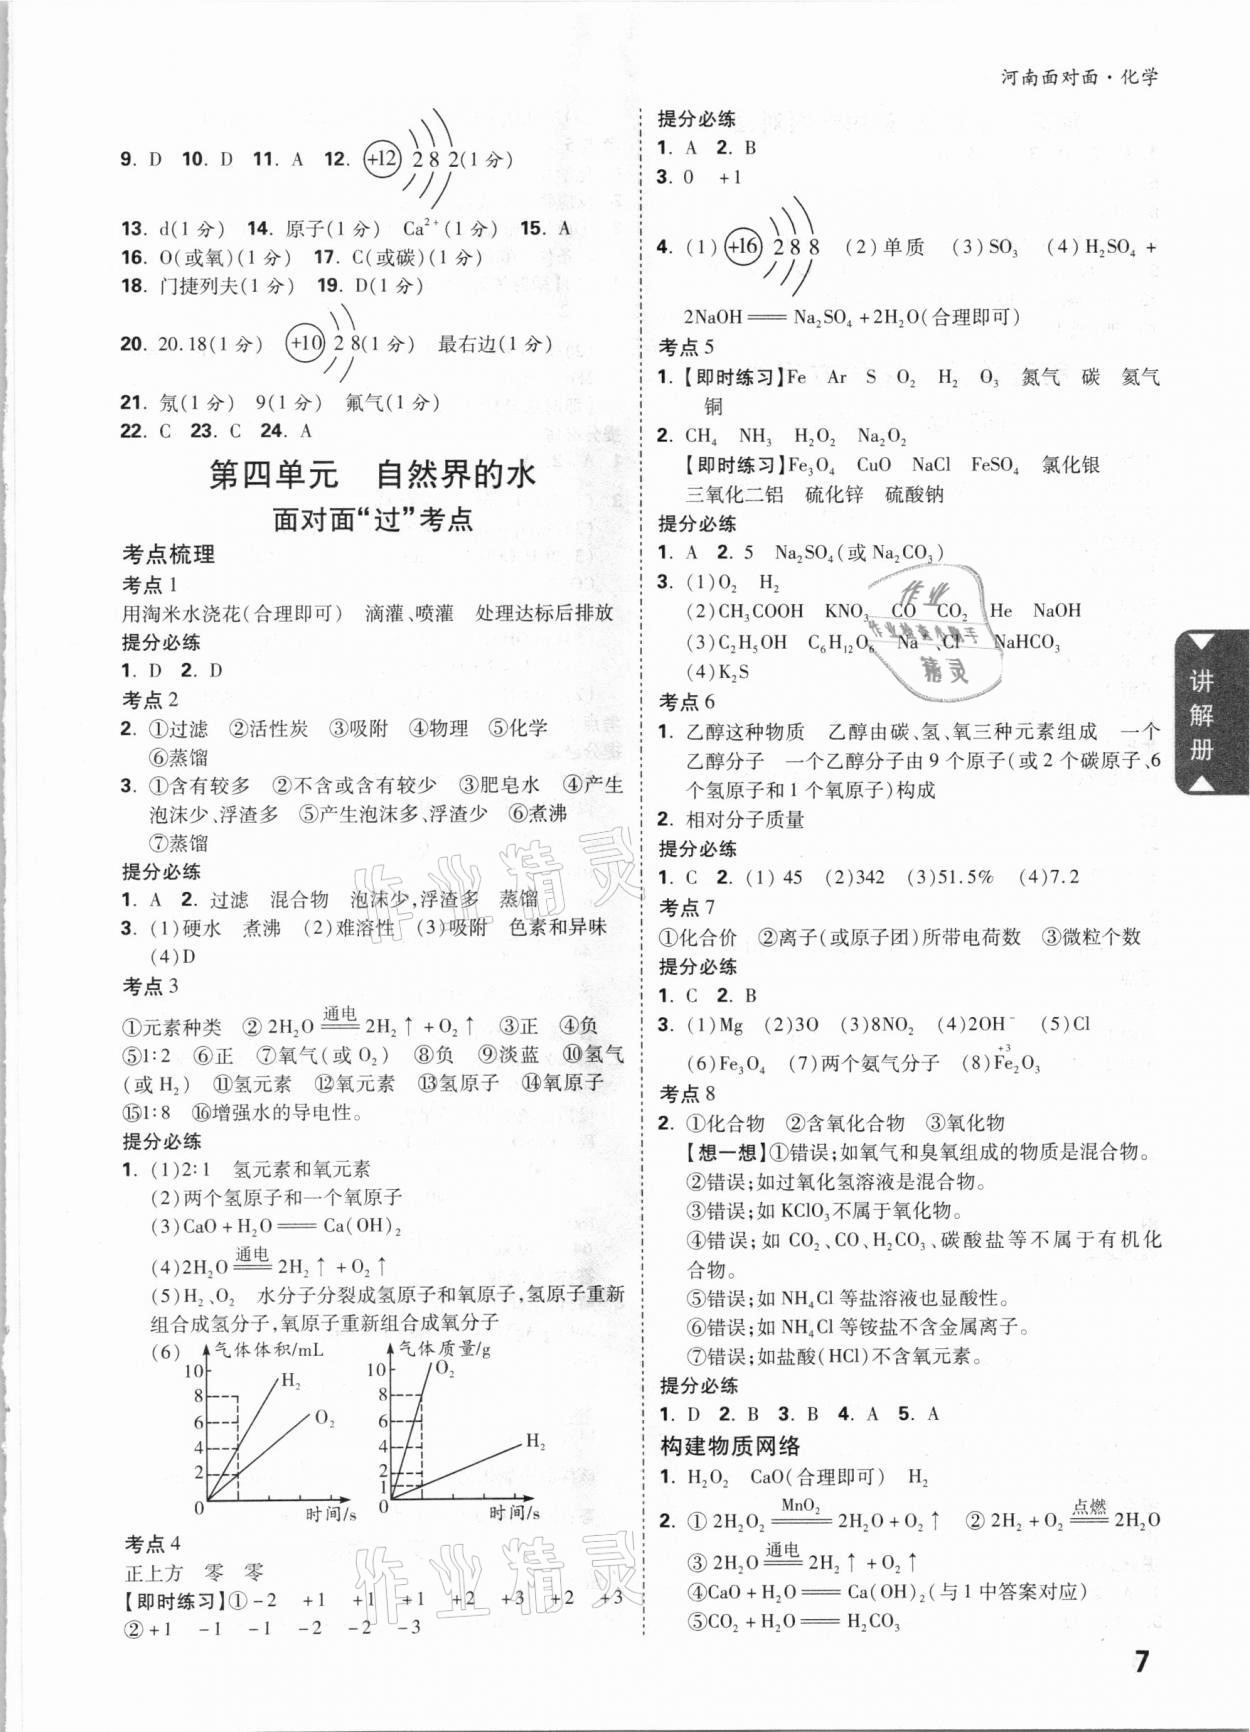 河南面对面·化学
9. D 10. D 11. A 12. (+12) 2 8 2(1分)
13. d(1分) 14. 原子(1分) Ca²⁺(1分) 15. A
16. O(或氧)(1分) 17. C(或碳)(1分)
18. 门捷列夫(1分) 19. D(1分)
20. 20.18(1分) (+10) 2 8(1分) 最右边(1分)
21. 氖(1分) 9(1分) 氟气(1分)
22. C 23. C 24. A
第四单元 自然界的水
面对面“过”考点
考点梳理
考点1
用淘米水浇花(合理即可) 滴灌、喷灌 处理达标后排放
提分必练
1. D 2. D
考点2
2. ①过滤 ②活性炭 ③吸附 ④物理 ⑤化学
⑥蒸馏
3. ①含有较多 ②不含或含有较少 ③肥皂水 ④产生
泡沫少、浮渣多 ⑤产生泡沫多、浮渣少 ⑥煮沸
⑦蒸馏
提分必练
1. A 2. 过滤 混合物 泡沫少,浮渣多 蒸馏
3. (1)硬水 煮沸 (2)难溶性 (3)吸附 色素和异味
(4)D
考点3
①元素种类 ②2H₂O 通电═ 2H₂↑+O₂↑ ③正 ④负
⑤1∶2 ⑥正 ⑦氧气(或O₂) ⑧负 ⑨淡蓝 ⑩氢气
(或H₂) ⑪氢元素 ⑫氧元素 ⑬氢原子 ⑭氧原子
⑮1∶8 ⑯增强水的导电性。
提分必练
1. (1)2∶1 氢元素和氧元素
(2)两个氢原子和一个氧原子
(3)CaO+H₂O══Ca(OH)₂
(4)2H₂O 通电═ 2H₂↑+O₂↑
(5)H₂、O₂ 水分子分裂成氢原子和氧原子,氢原子重新
组合成氢分子,氧原子重新组合成氧分子
(6) 气体体积/mL
10
8
6
4
2
0
H₂
O₂
时间/s
气体质量/g
10
8
6
4
2
1
0
O₂
H₂
时间/s
考点4
正上方 零 零
【即时练习】①-2 +1 +1 +1 +2 +3 +2 +3
②+1 -1 -1 -2 -2 -3
提分必练
1. A 2. B
3. 0 +1
4. (1) (+16) 2 8 8 (2)单质 (3)SO₃ (4)H₂SO₄+
2NaOH══Na₂SO₄+2H₂O(合理即可)
考点5
1.【即时练习】Fe Ar S O₂ H₂ O₃ 氮气 碳 氦气
铜
2. CH₄ NH₃ H₂O₂ Na₂O₂
【即时练习】Fe₃O₄ CuO NaCl FeSO₄ 氯化银
三氧化二铝 硫化锌 硫酸钠
提分必练
1. A 2. 5 Na₂SO₄(或Na₂CO₃)
3. (1)O₂ H₂
(2)CH₃COOH KNO₃ CO CO₂ He NaOH
(3)C₂H₅OH C₆H₁₂O₆ Na⁺、Cl⁻ NaHCO₃
(4)K₂S
考点6
1. 乙醇这种物质 乙醇由碳、氢、氧三种元素组成 一个
乙醇分子 一个乙醇分子由9个原子(或2个碳原子、6
个氢原子和1个氧原子)构成
2. 相对分子质量
提分必练
1. C 2. (1) 45 (2)342 (3)51.5% (4)7.2
考点7
①化合价 ②离子(或原子团)所带电荷数 ③微粒个数
提分必练
1. C 2. B
3. (1)Mg (2)3O (3)8NO₂ (4)2OH⁻ (5)Cl
(6)Fe₃O₄ (7)两个氨气分子 (8)Fe₂O₃ +3
考点8
2. ①化合物 ②含氧化合物 ③氧化物
【想一想】①错误;如氧气和臭氧组成的物质是混合物。
②错误;如过氧化氢溶液是混合物。
③错误;如KClO₃不属于氧化物。
④错误;如CO₂、CO、H₂CO₃、碳酸盐等不属于有机化
合物。
⑤错误;如NH₄Cl等盐溶液也显酸性。
⑥错误;如NH₄Cl等铵盐不含金属离子。
⑦错误;如盐酸(HCl)不含氧元素。
提分必练
1. D 2. B 3. B 4. A 5. A
构建物质网络
1. H₂O₂ CaO(合理即可) H₂
2. ①2H₂O₂ MnO₂═ 2H₂O+O₂↑ ②2H₂+O₂ 点燃═ 2H₂O
③2H₂O 通电═ 2H₂↑+O₂↑
④CaO+H₂O══Ca(OH)₂(与1中答案对应)
⑤CO₂+H₂O══H₂CO₃
讲解册
7
作业精灵
作业精灵
作业
作业检查小助手
精灵